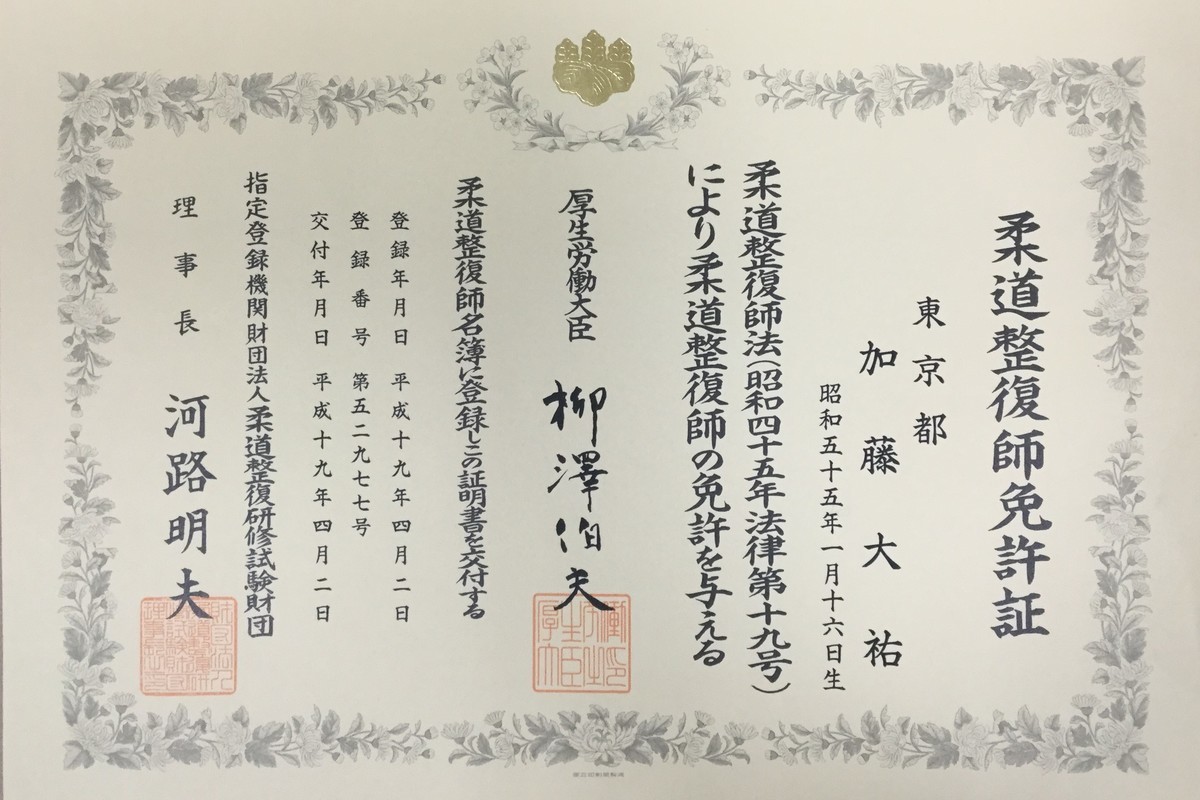 柔道整復師免許証
東京都
加藤大祐
昭和五十五年一月十六日生
柔道整復師法(昭和四十五年法律第十九号)
により柔道整復師の免許を与える
厚生労働大臣
柳澤伯夫
柔道整復師名簿に登録しこの証明書を交付する
登録年月日 平成十九年四月二日
登録番号 第五二九七七号
交付年月日 平成十九年四月二日
指定登録機関財団法人柔道整復研修試験財団
理事長 河路明夫